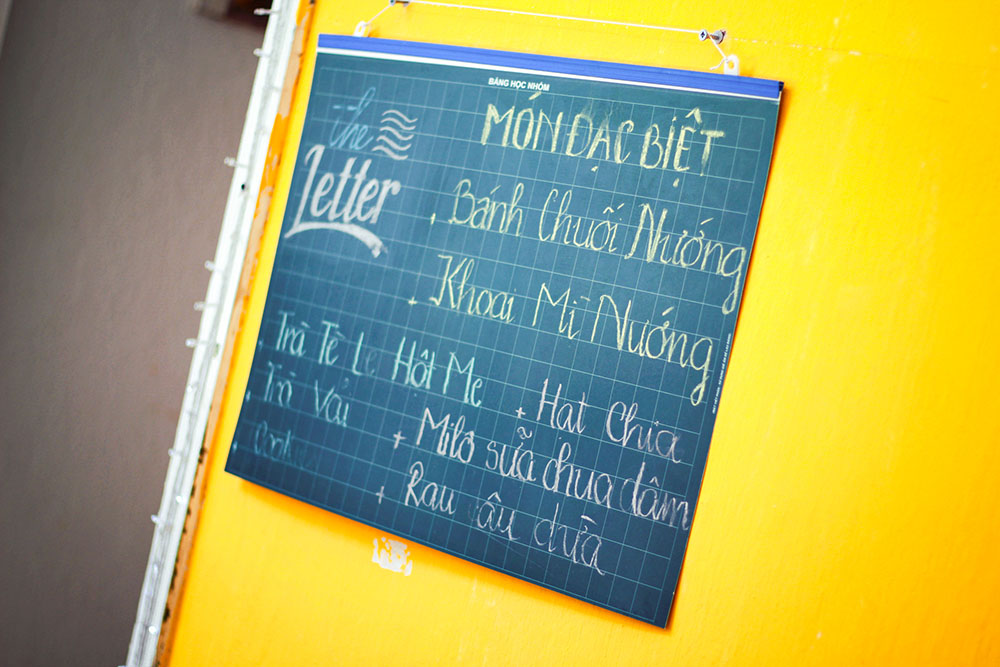 BẢNG HỌC NHÓM
the
Letter
MÓN ĐẶC BIỆT
. Bánh Chuối Nướng
. Khoai Mì Nướng
. Trà Tê Le Hột Me
. Trà Vải
. Cookie
+ Hat Chia
+ Milo sữa chua dâm
+ Rau câu dừa